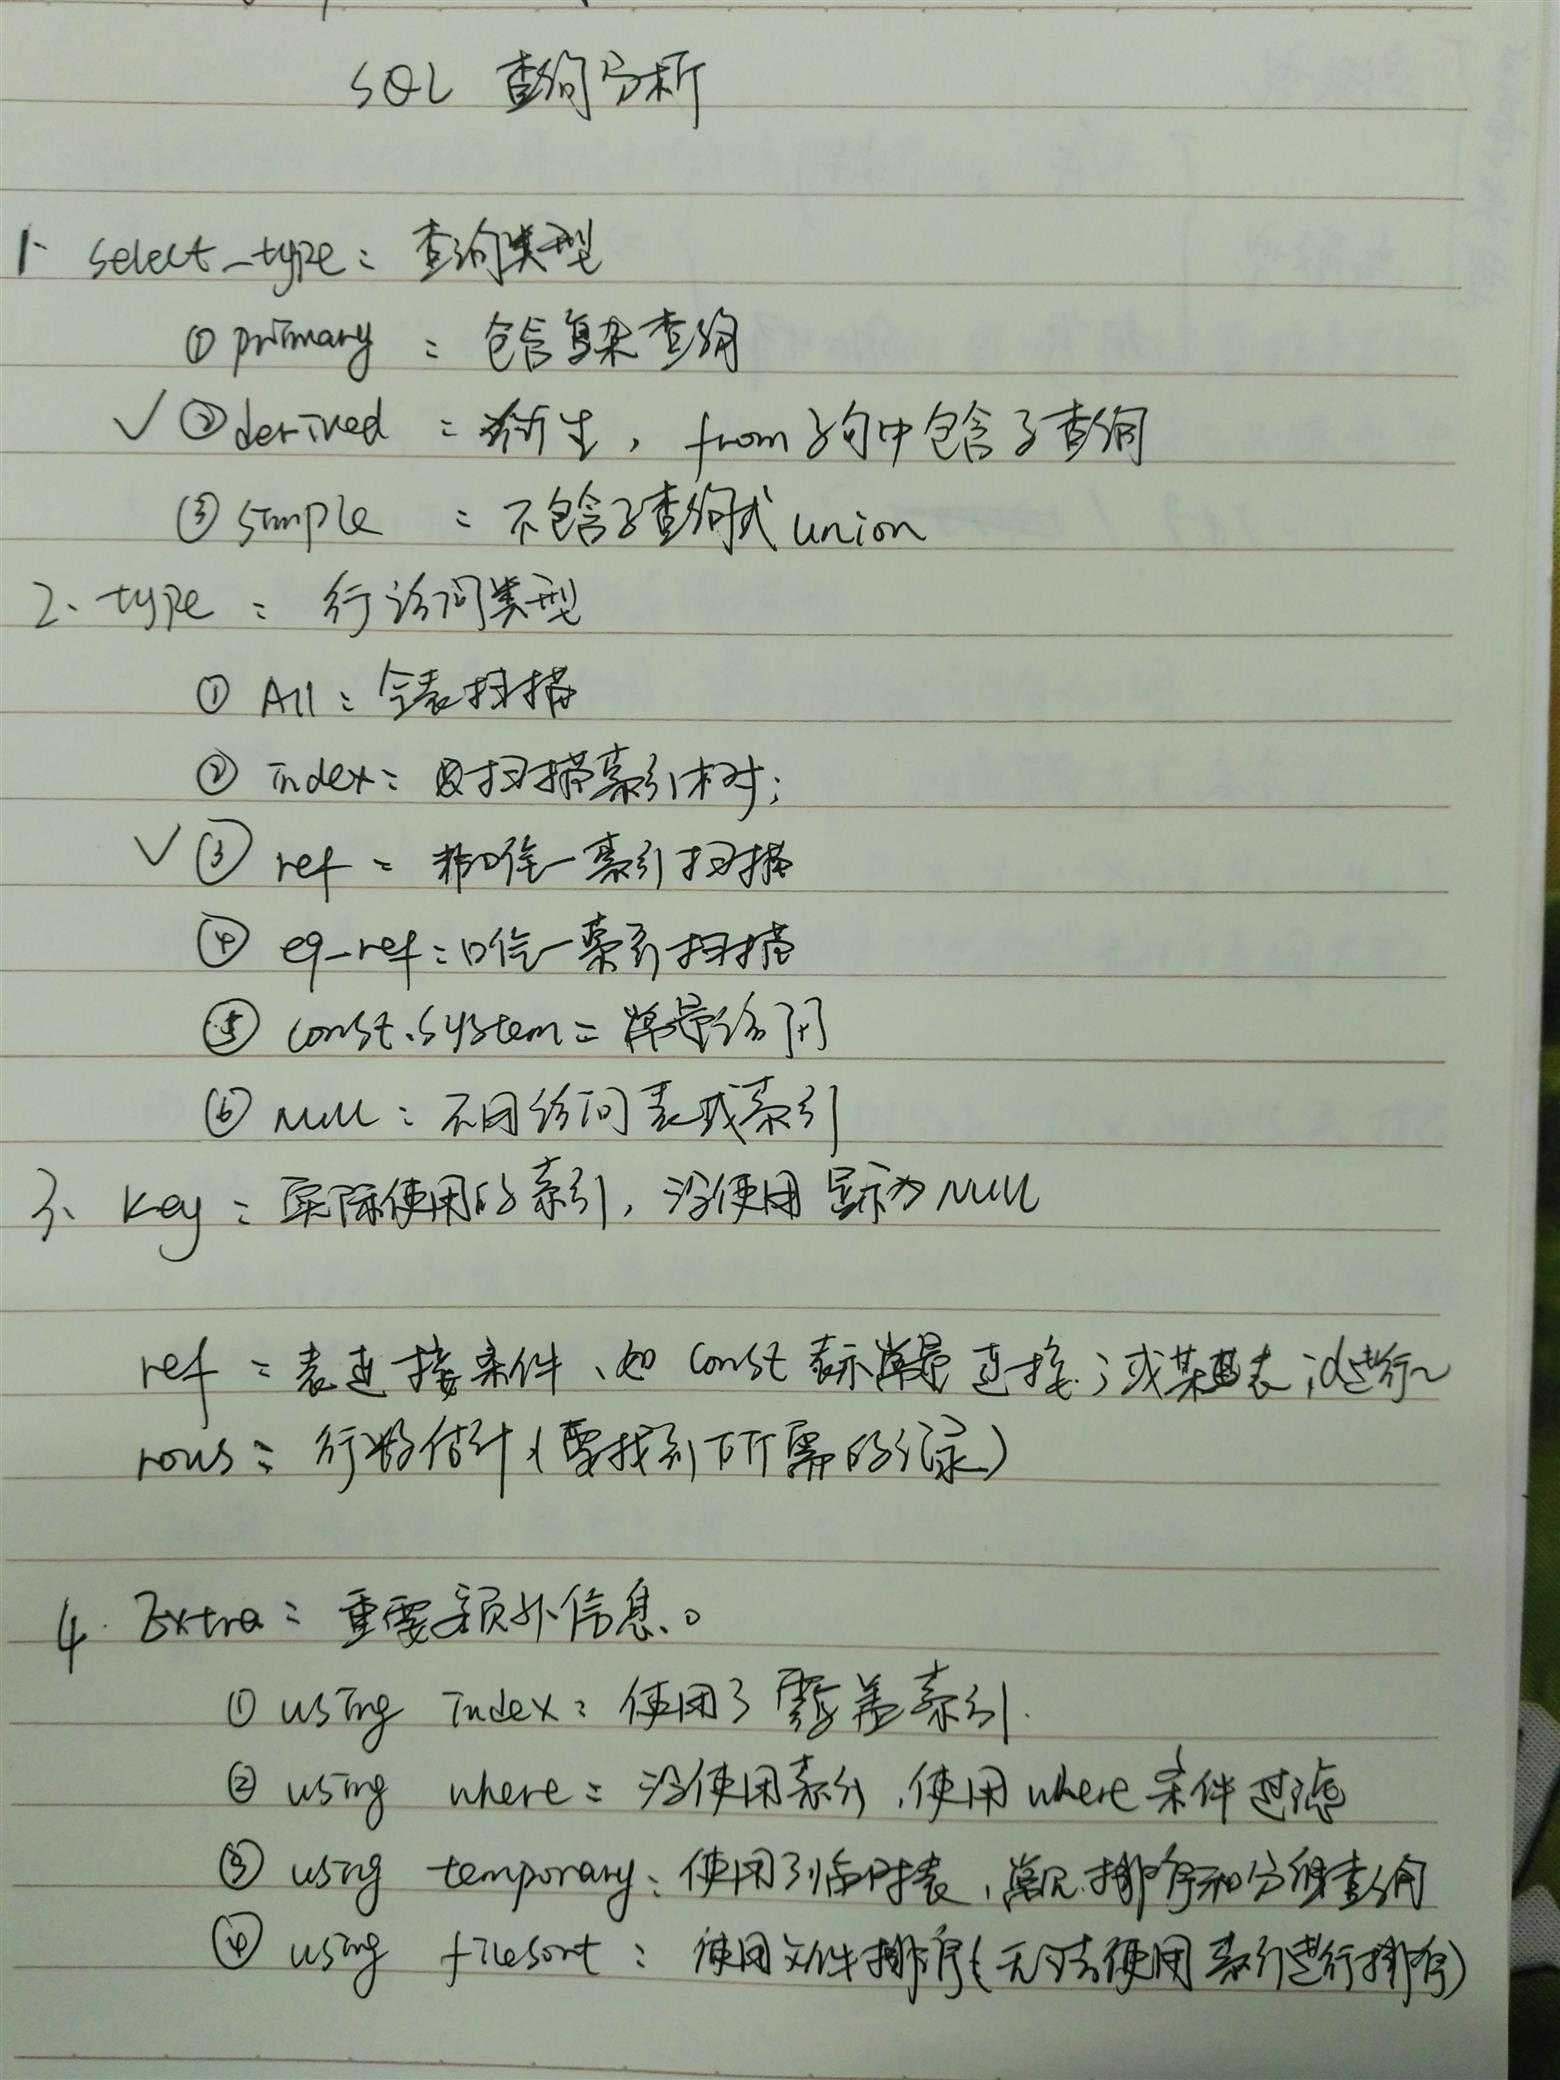 SQL 查询分析
1、select_type：查询类型
① primary ：包含复杂查询
✓ ② derived ：衍生，from子句中包含子查询
③ simple ：不包含子查询或union
2、type ：行访问类型
① All：全表扫描
② index：只扫描索引树；
✓ ③ ref ：非唯一索引扫描
④ eq_ref：唯一索引扫描
⑤ const、system：常量访问
⑥ null：不用访问表或索引
3、key ：实际使用的索引，没使用显示为null
ref ：表连接条件、如const表示常量连接；或某表id进行~
rows：行数估计（要找到所需的记录）
4. Extra：重要额外信息。
① using index：使用了覆盖索引.
② using where：没使用索引，使用where条件过滤
③ using temporary：使用了临时表，常见排序和分组查询
④ using filesort：使用文件排序（无法使用索引进行排序）